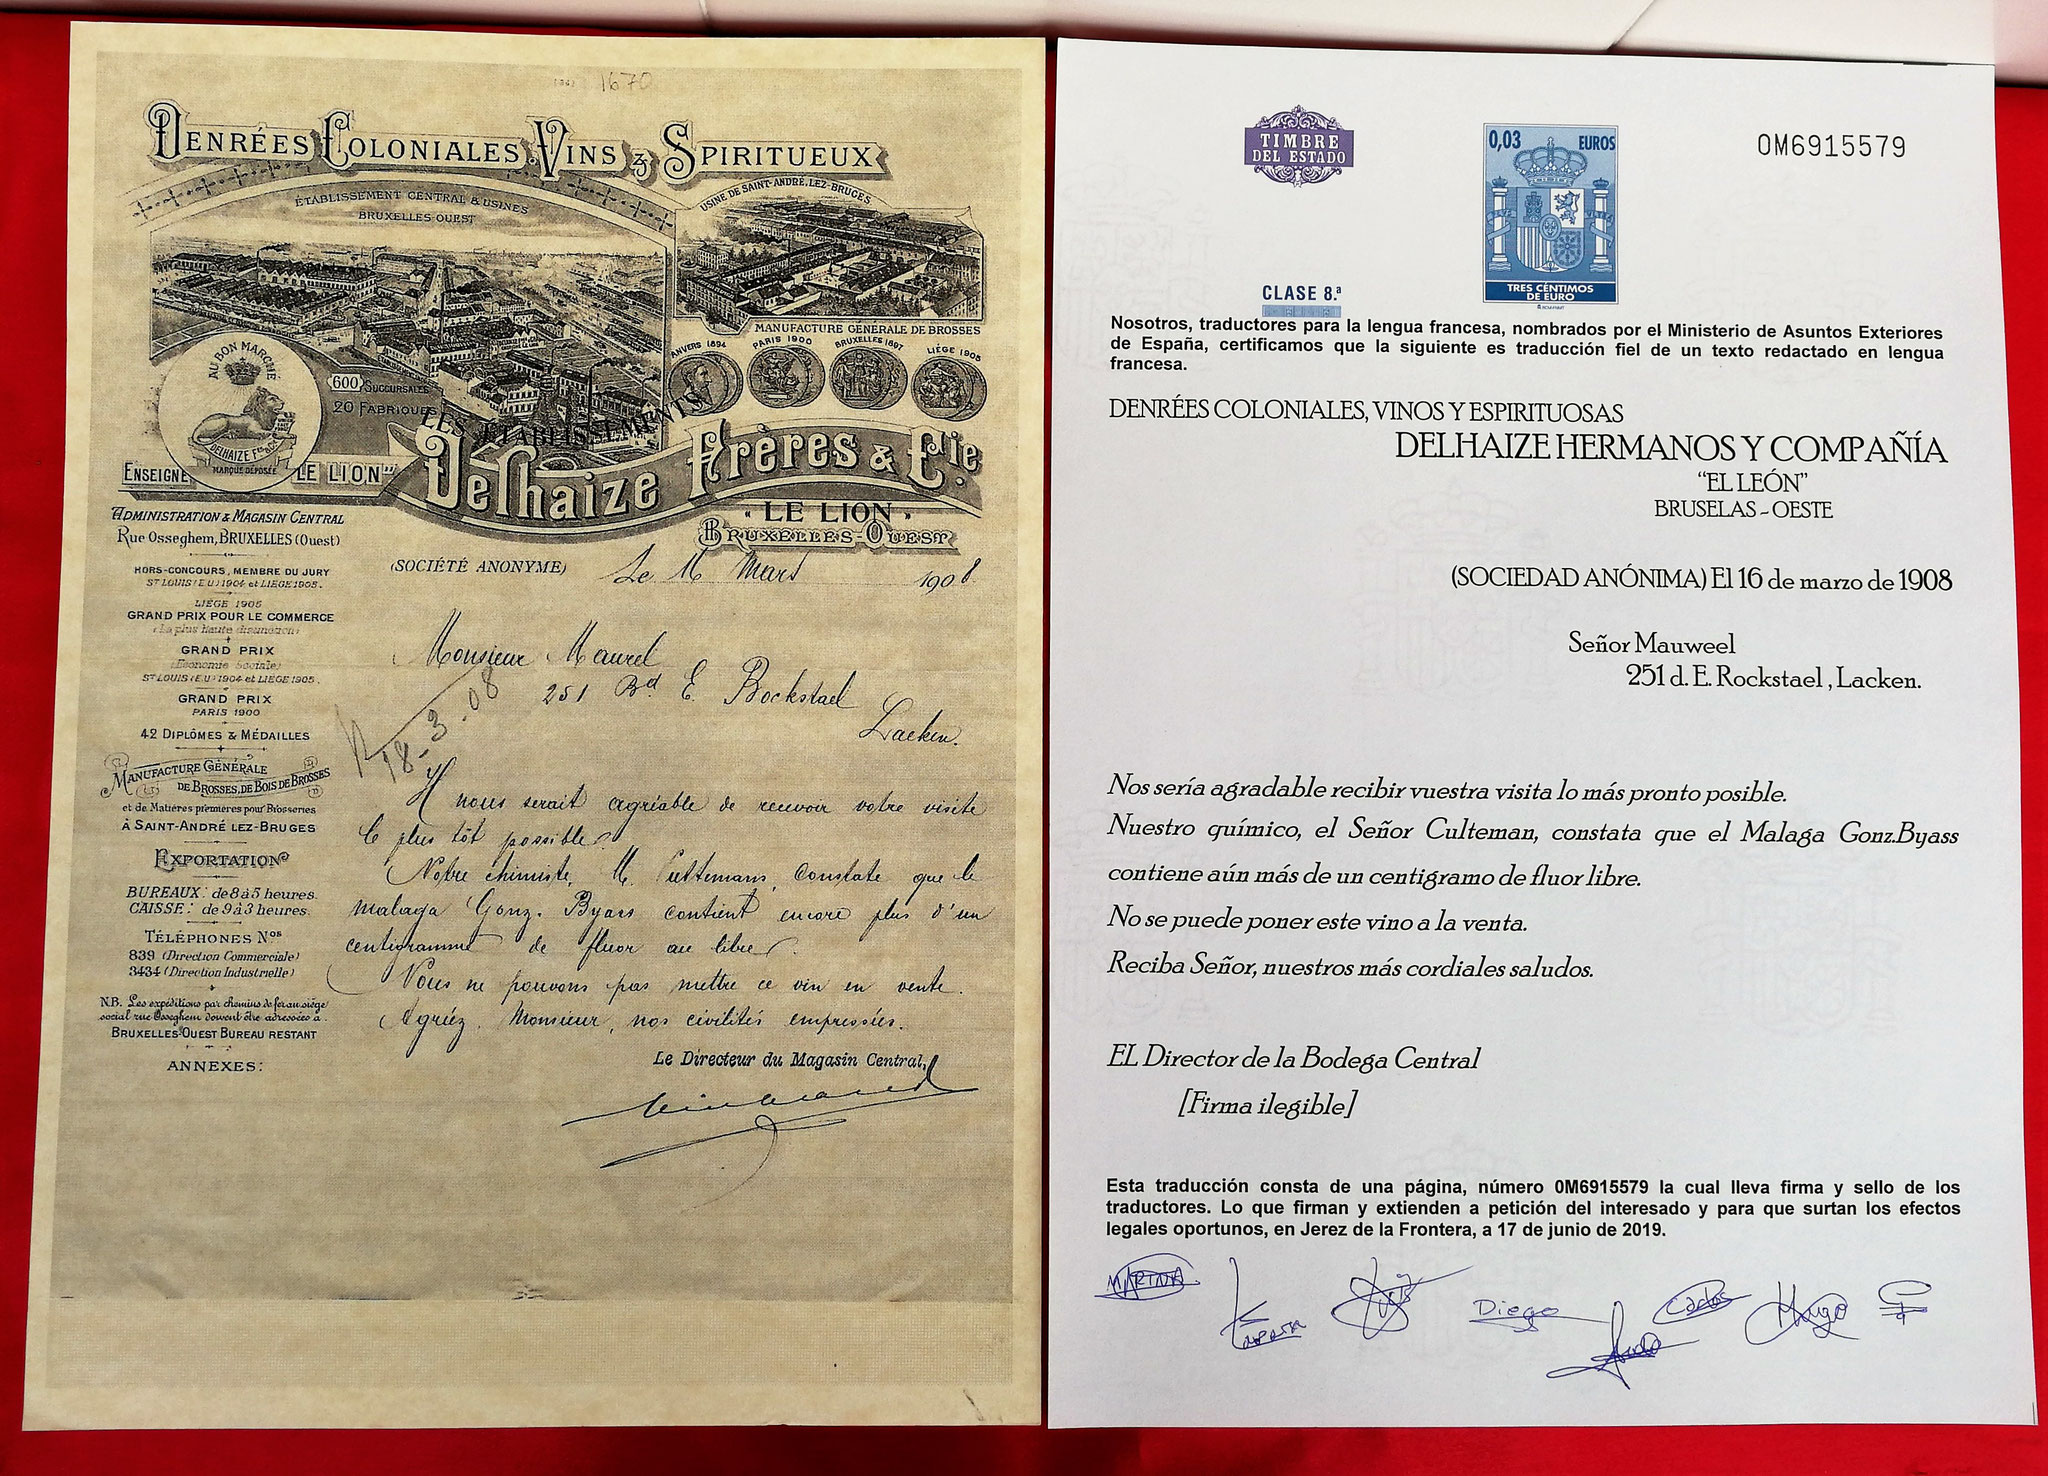 1670
DENRÉES COLONIALES. VINS & SPIRITUEUX
ÉTABLISSEMENT CENTRAL & USINES
BRUXELLES-OUEST
USINE DE SAINT-ANDRÉ, LEZ-BRUGES
MANUFACTURE GENERALE DE BROSSES
ANVERS 1894
PARIS 1900
BRUXELLES 1897
LIÉGE 1905
AU BON MARCHÉ
DELHAIZE FRES & CIE
MARQUE DÉPOSÉE
600 SUCCURSALES
20 FABRIQUES
LES ÉTABLISSEMENTS
ENSEIGNE "LE LION"
Delhaize Frères & Cie.
« LE LION »
BRUXELLES-OUEST
ADMINISTRATION & MAGASIN CENTRAL
Rue Osseghem, BRUXELLES (Ouest)
HORS-CONCOURS, MEMBRE DU JURY
ST LOUIS (E.U.) 1904 et LIÉGE 1905.
LIÉGE 1905
GRAND PRIX POUR LE COMMERCE
(La plus haute distinction)
GRAND PRIX
(Économie Sociale)
ST LOUIS (E.U.) 1904 et LIÉGE 1905.
GRAND PRIX
PARIS 1900
42 DIPLÔMES & MÉDAILLES
MANUFACTURE GÉNÉRALE
DE BROSSES, DE BOIS DE BROSSES
et de Matières premières pour Brosseries
À SAINT-ANDRÉ LEZ-BRUGES
EXPORTATION
BUREAUX: de 8 à 5 heures.
CAISSE: de 9 à 3 heures.
TÉLÉPHONES Nos
839 (Direction Commerciale)
3434 (Direction Industrielle)
N.B. Les expéditions par chemins de fer au siège
social rue Osseghem doivent être adressées à
BRUXELLES-OUEST BUREAU RESTANT
ANNEXES:
(SOCIÉTÉ ANONYME) Le 16 Mars 1908.
Monsieur Maurel
251 Bd E. Bockstael
Laeken.
R 18-3-08
Il nous serait agréable de recevoir votre visite
le plus tôt possible.
Notre chimiste, M. Cuttemans, constate que le
malaga Gonz. Byass contient encore plus d'un
centigramme de fluor au litre.
Nous ne pouvons pas mettre ce vin en vente.
Agréez, Monsieur, nos civilités empressées.
Le Directeur du Magasin Central,
TIMBRE
DEL ESTADO
0,03 EUROS
TRES CÉNTIMOS
DE EURO
0M6915579
CLASE 8.ª
Nosotros, traductores para la lengua francesa, nombrados por el Ministerio de Asuntos Exteriores
de España, certificamos que la siguiente es traducción fiel de un texto redactado en lengua
francesa.
DENRÉES COLONIALES, VINOS Y ESPIRITUOSAS
DELHAIZE HERMANOS Y COMPAÑÍA
"EL LEÓN"
BRUSELAS - OESTE
(SOCIEDAD ANÓNIMA) El 16 de marzo de 1908
Señor Mauweel
251 d. E. Rockstael , Lacken.
Nos sería agradable recibir vuestra visita lo más pronto posible.
Nuestro químico, el Señor Culteman, constata que el Malaga Gonz.Byass
contiene aún más de un centigramo de fluor libre.
No se puede poner este vino a la venta.
Reciba Señor, nuestros más cordiales saludos.
EL Director de la Bodega Central
[Firma ilegible]
Esta traducción consta de una página, número 0M6915579 la cual lleva firma y sello de los
traductores. Lo que firman y extienden a petición del interesado y para que surtan los efectos
legales oportunos, en Jerez de la Frontera, a 17 de junio de 2019.
MARINA Luis Diego Carlos Hugo